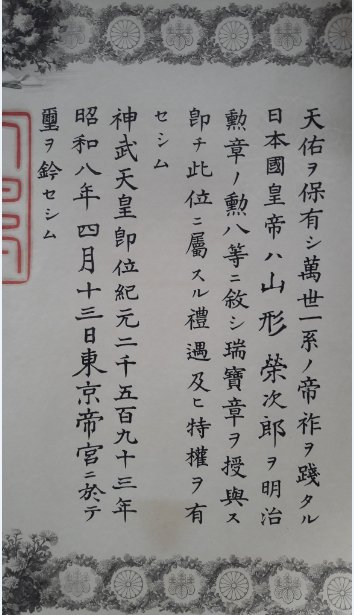 天佑ヲ保有シ萬世一系ノ帝祚ヲ踐タル
日本國皇帝ハ山形榮次郎ヲ明治
勲章ノ勲八等ニ敘シ瑞寶章ヲ授與ス
卽チ此位ニ屬スル禮遇及ヒ特權ヲ有
セシム
神武天皇卽位紀元二千五百九十三年
昭和八年四月十三日東京帝宮ニ於テ
璽ヲ鈐セシム